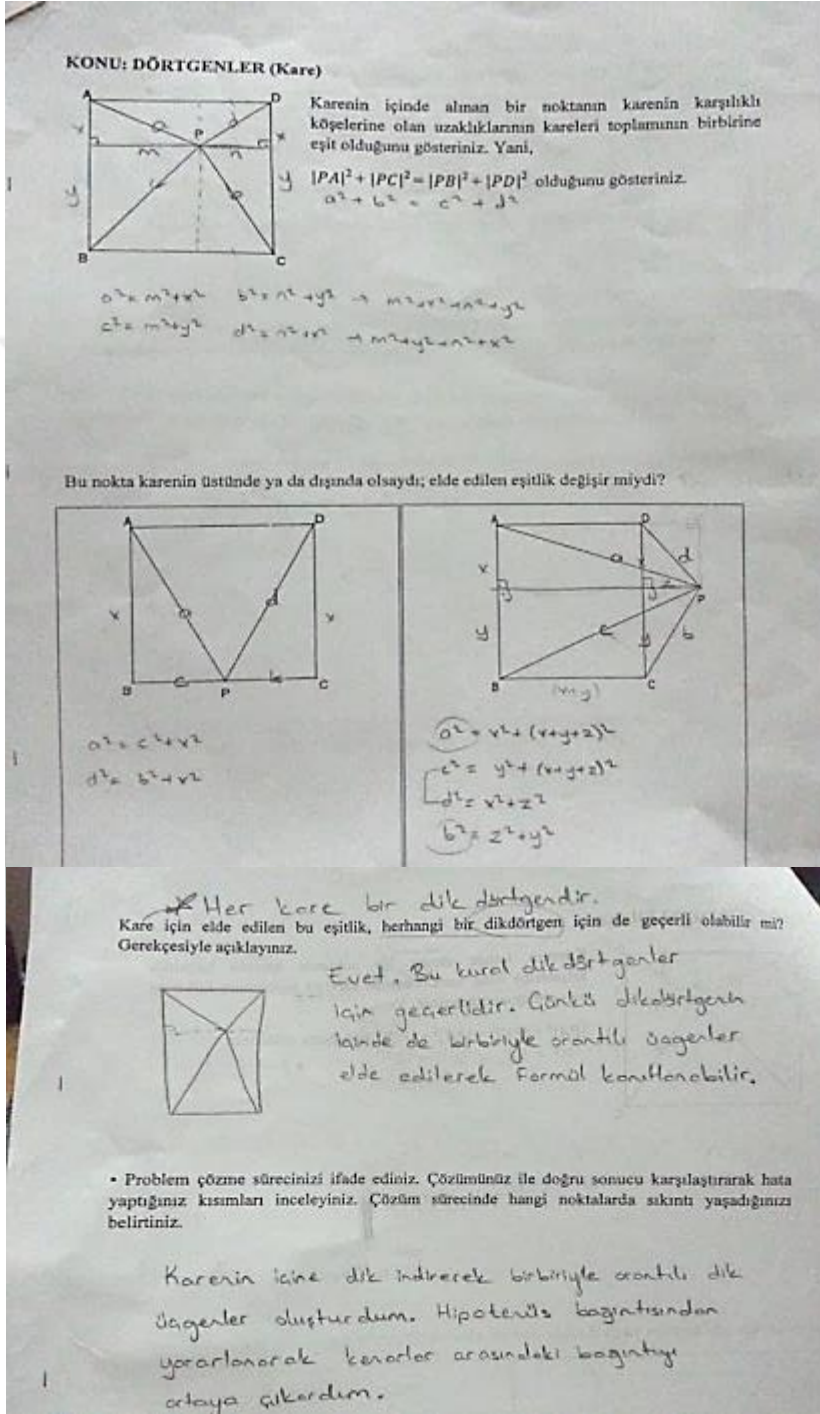 KONU: DÖRTGENLER (Kare)
Karenin içinde alınan bir noktanın karenin karşılıklı
köşelerine olan uzaklıklarının kareleri toplamının birbirine
eşit olduğunu gösteriniz. Yani,
|PA|² + |PC|² = |PB|² + |PD|² olduğunu gösteriniz.
a² + b² = c² + d²
A
D
P
x
x
a
d
m
n
y
y
c
b
B
C
a² = m²+x² b² = n²+y² → m²+x²+n²+y²
c² = m²+y² d² = n²+x² → m²+y²+n²+x²
Bu nokta karenin üstünde ya da dışında olsaydı; elde edilen eşitlik değişir miydi?
A
D
x
a
d
x
B
c
P
b
C
a² = c²+x²
d² = b²+x²
A
D
x
a
d
z
P
y
c
y
b
B
(x+y)
C
a² = x²+(x+y+z)²
c² = y²+(x+y+z)²
d² = x²+z²
b² = z²+y²
* Her kare bir dik dörtgendir.
Kare için elde edilen bu eşitlik, herhangi bir dikdörtgen için de geçerli olabilir mi?
Gerekçesiyle açıklayınız.
Evet. Bu kural dikdörtgenler
için geçerlidir. Çünkü dikdörtgenin
içinde de birbiriyle orantılı üçgenler
elde edilerek Formül kanıtlanabilir.
• Problem çözme sürecinizi ifade ediniz. Çözümünüz ile doğru sonucu karşılaştırarak hata
yaptığınız kısımları inceleyiniz. Çözüm sürecinde hangi noktalarda sıkıntı yaşadığınızı
belirtiniz.
Karenin içine dik indirerek birbiriyle orantılı dik
üçgenler oluşturdum. Hipotenüs bağıntısından
yararlanarak kenarlar arasındaki bağıntıyı
ortaya çıkardım.